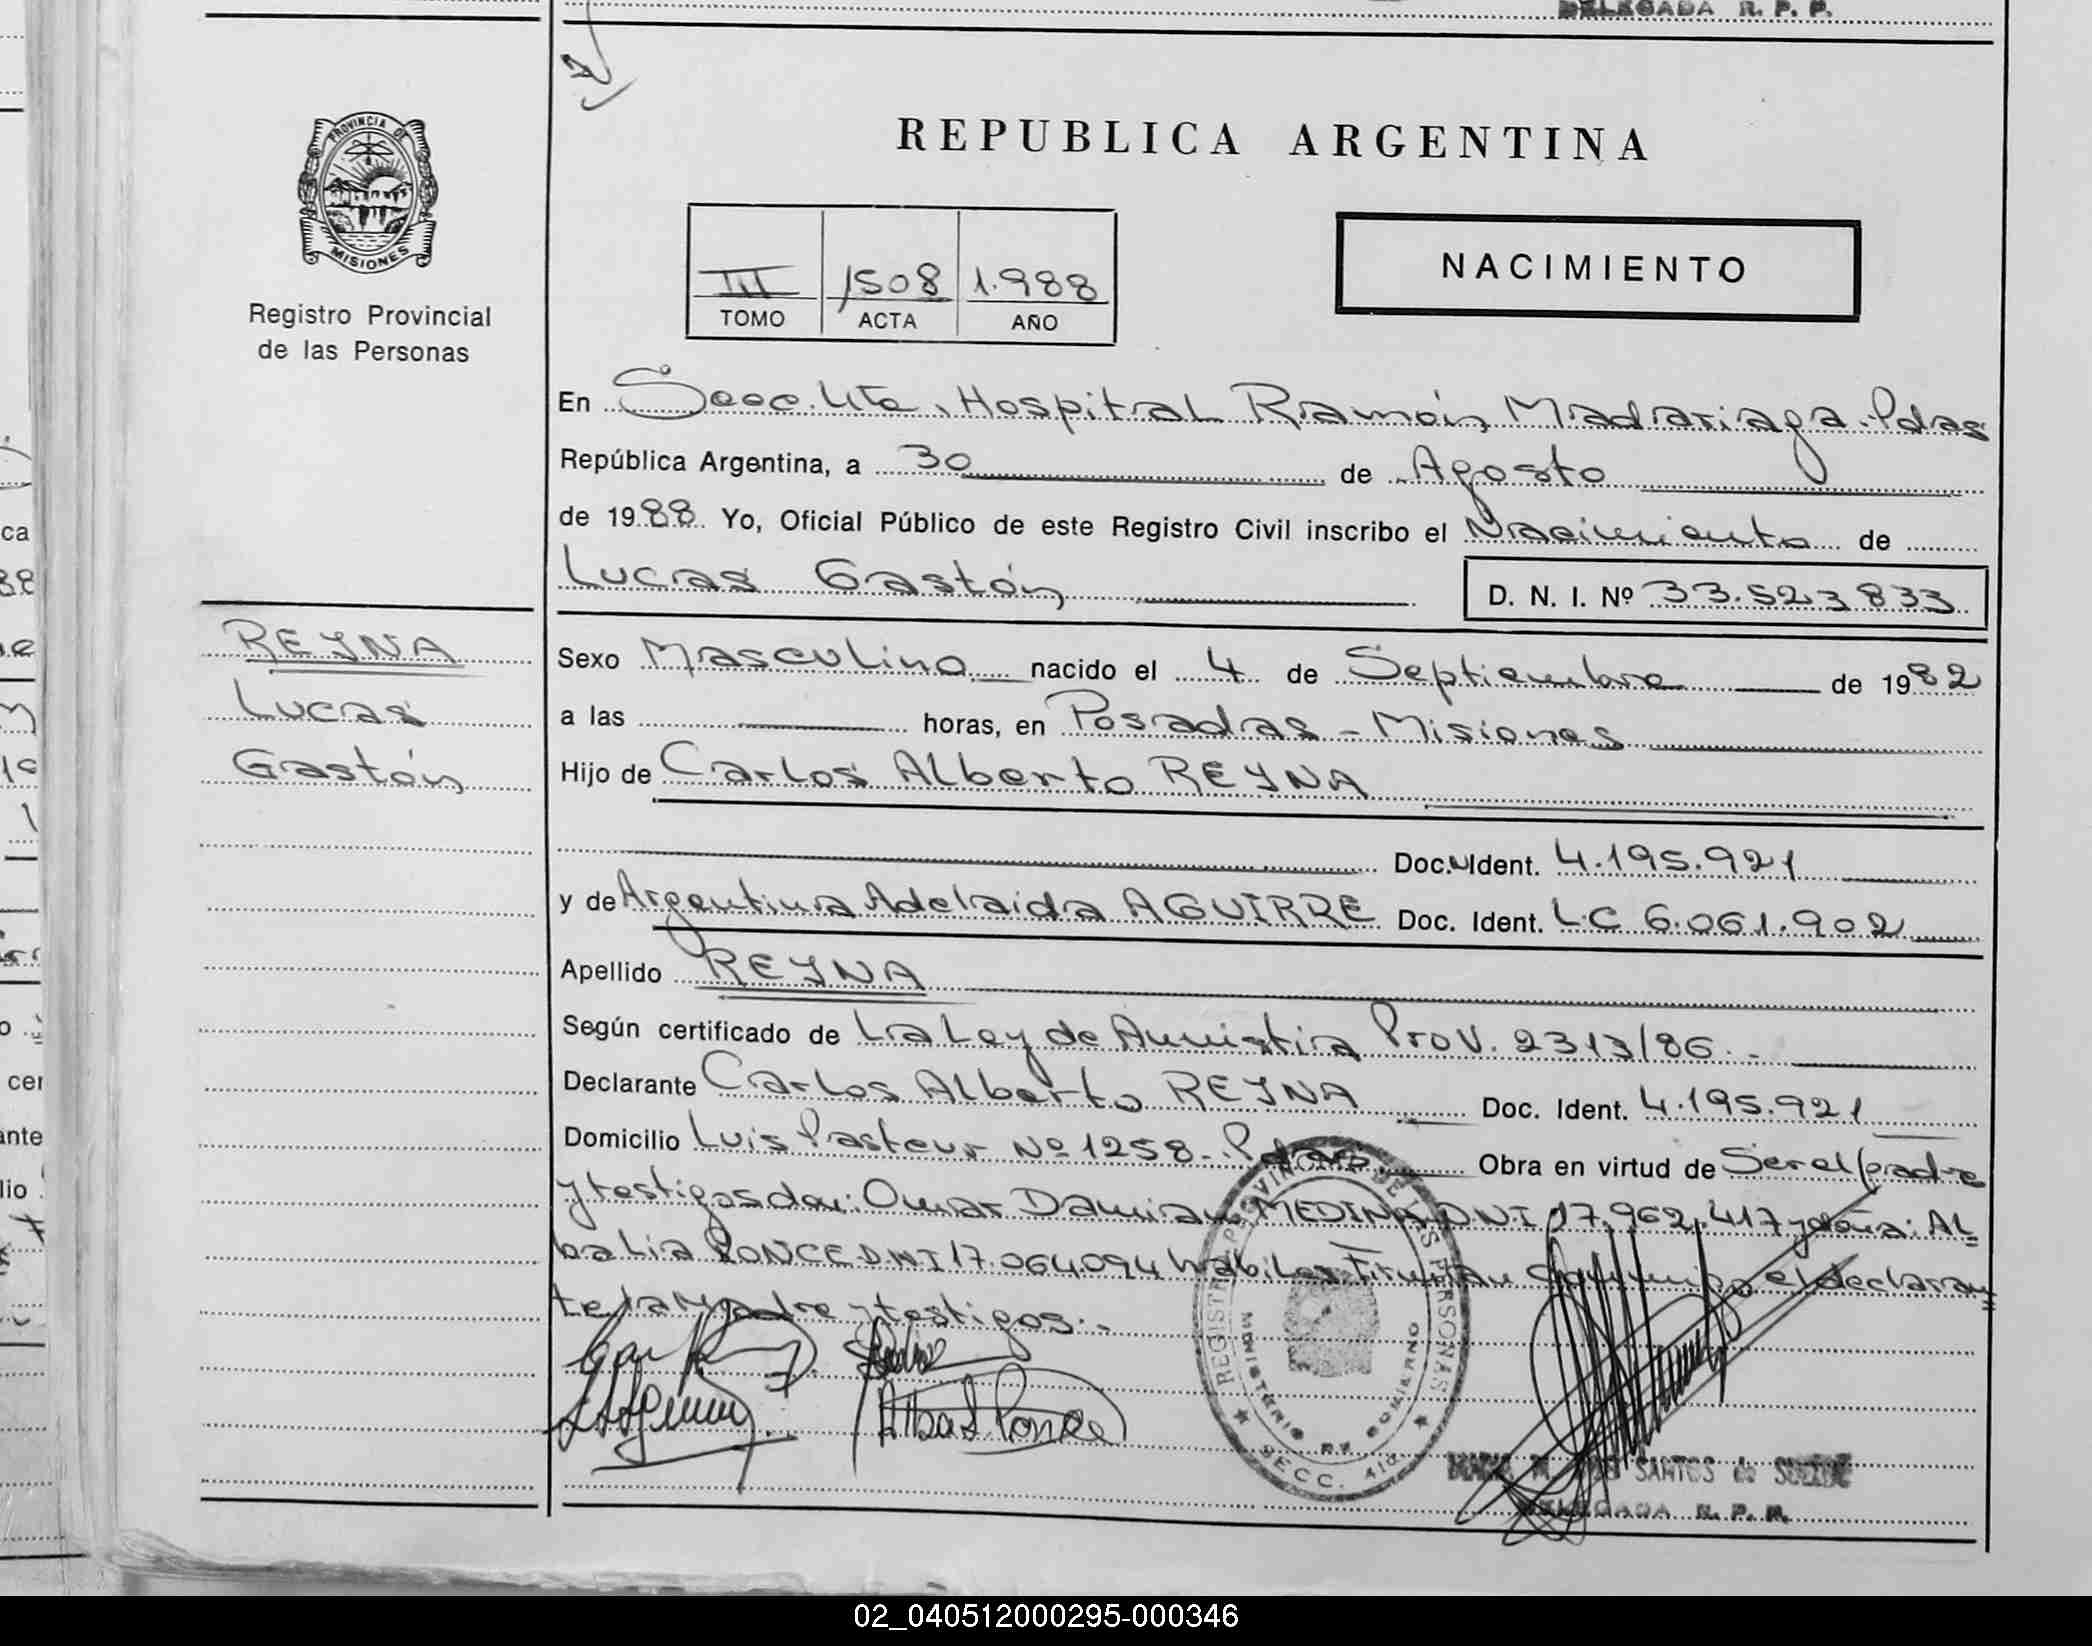 DELEGADA R. P. P.
PROVINCIA DE
MISIONES
Registro Provincial
de las Personas
REPUBLICA ARGENTINA
III 1508 1.988
TOMO ACTA AÑO
NACIMIENTO
En Secc. 4ta. Hospital Ramón Madariaga. Pdas
República Argentina, a 30 de Agosto
de 1988. Yo, Oficial Público de este Registro Civil inscribo el Nacimiento de
Lucas Gastón
D. N. I. Nº 33.523.833
REYNA
Lucas
Gastón
Sexo Masculino nacido el 4 de Septiembre de 1982
a las horas, en Posadas - Misiones
Hijo de Carlos Alberto REYNA
Doc. Ident. 4.195.921
y de Argentina Adelaida AGUIRRE Doc. Ident. L.C 6.061.902
Apellido REYNA
Según certificado de La Ley de Amnistia Prov. 2313/86.-
Declarante Carlos Alberto REYNA Doc. Ident. 4.195.921
Domicilio Luis Pasteur Nº 1258 - Pdas. Obra en virtud de Ser el padre
y testigos don: Omar Damian MEDINA D.N.I 17.962.417 y doña: Al=
ba Lia PONCE D.N.I 17.064.094 habiles Firman conmigo el declaran=
te, la Madre y testigos.-
Alba L Ponce
REGISTRO PROVINCIAL DE LAS PERSONAS
MINISTERIO DE GOBIERNO
SECC. 4ta
SANTOS de
DELEGADA R. P. P.
02_040512000295-000346